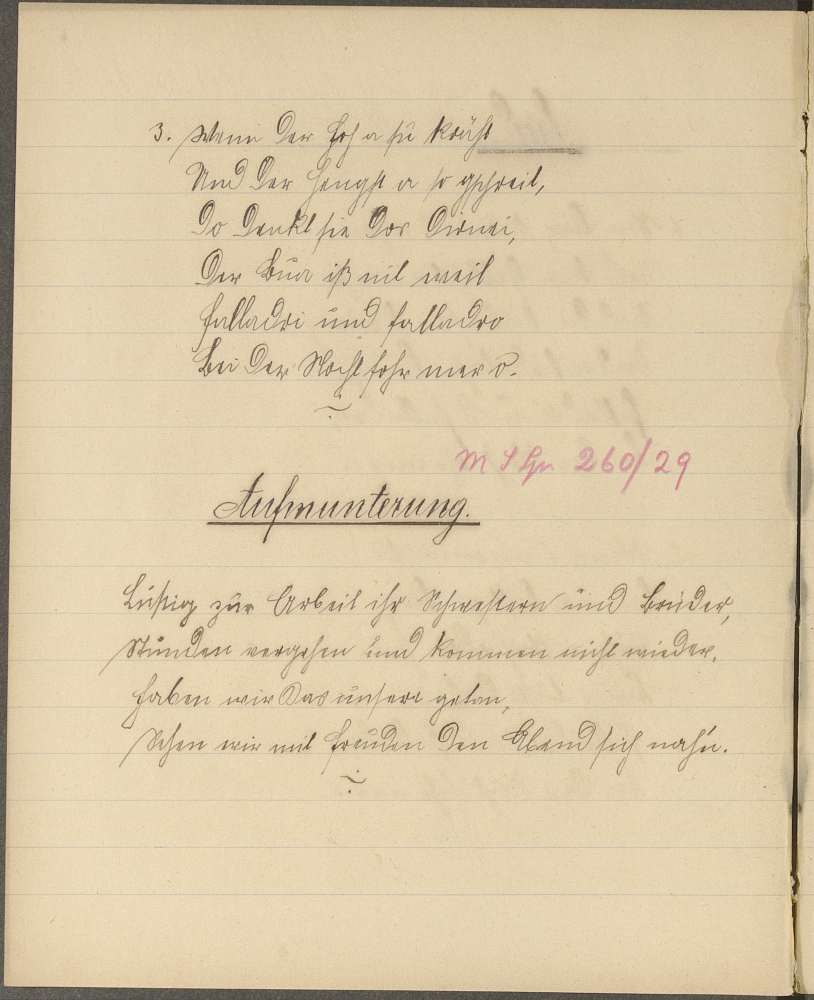 3. Wenn der Hoh a su kräht
Und der Hengst a so gschreit,
Do denkt sie dos Dirnei,
Der Bua iß nit weit
Falladri und falladro
Bei der Nocht fohr mer o.
M S Gr 260/29
Aufmunterung.
Lustig zur Arbeit ihr Schwestern und Brüder,
Stunden vergehen und kommen nicht wieder.
Haben wir das unsere getan,
Sehen wir mit Freuden den Abend sich nah'n.